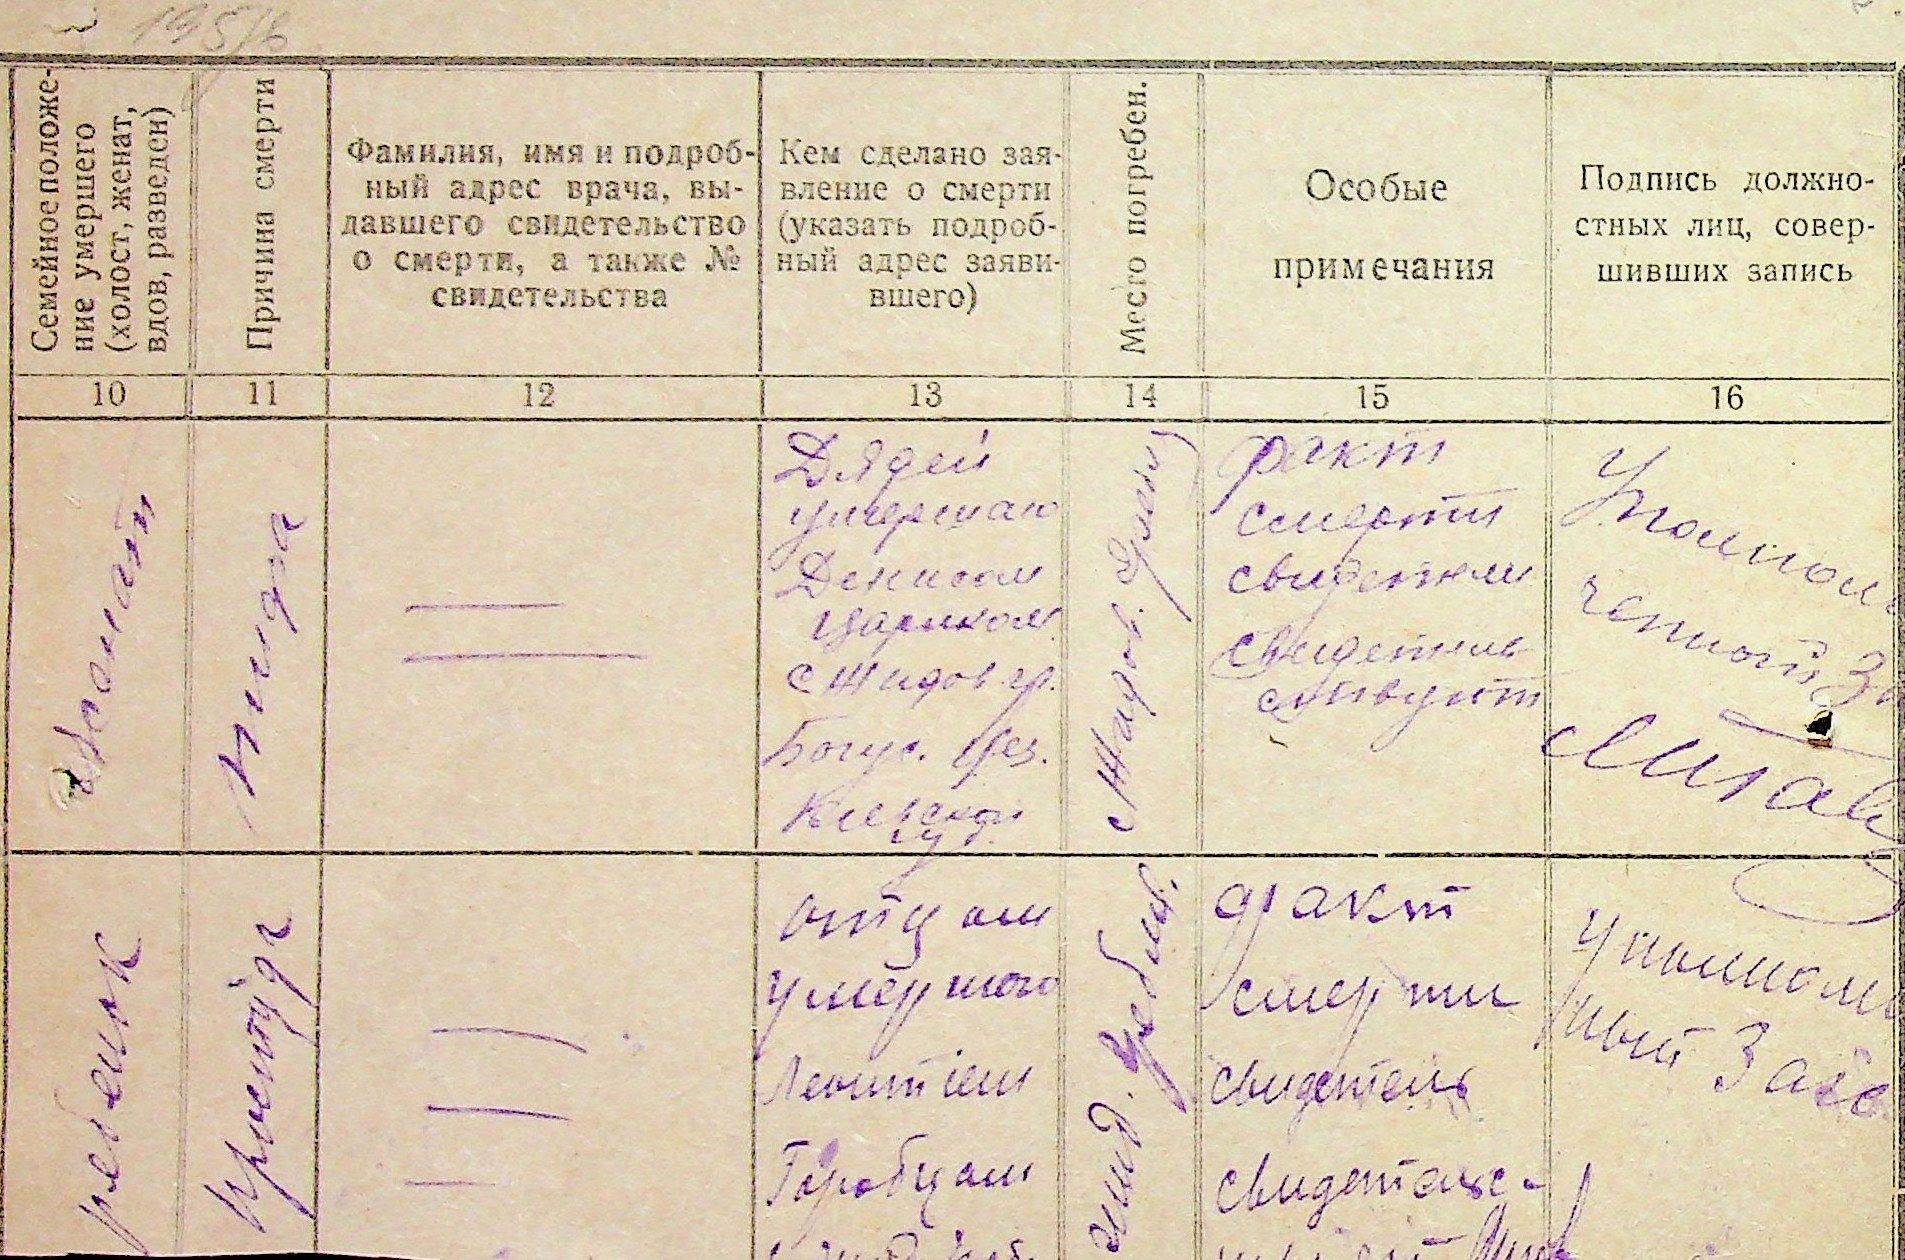 1957г
Семейное положе-
ние умершего
(холост, женат,
вдов, разведен)
Причина смерти
Фамилия, имя и подроб-
ный адрес врача, вы-
давшего свидетельство
о смерти, а также №
свидетельства
Кем сделано зая-
вление о смерти
(указать подроб-
ный адрес заяви-
вшего)
Место погребен.
Особые
примечания
Подпись должно-
стных лиц, совер-
шивших запись
10
11
12
13
14
15
16
женат
Дядей
умершаго
Денисом
Цариком
с Жидов гр.
Богус. рез.
Киевской
гу
Жидов. Гребли
факт
смерти
свидетели
свидетель
ствуют
Уполномо
ченной За
ребенок
простуда
отцом
умершого
Леонтием
Горобцом
жид. Гребли.
факт
смерти
свидетель
свидетельс-
Уполном
ный Загс